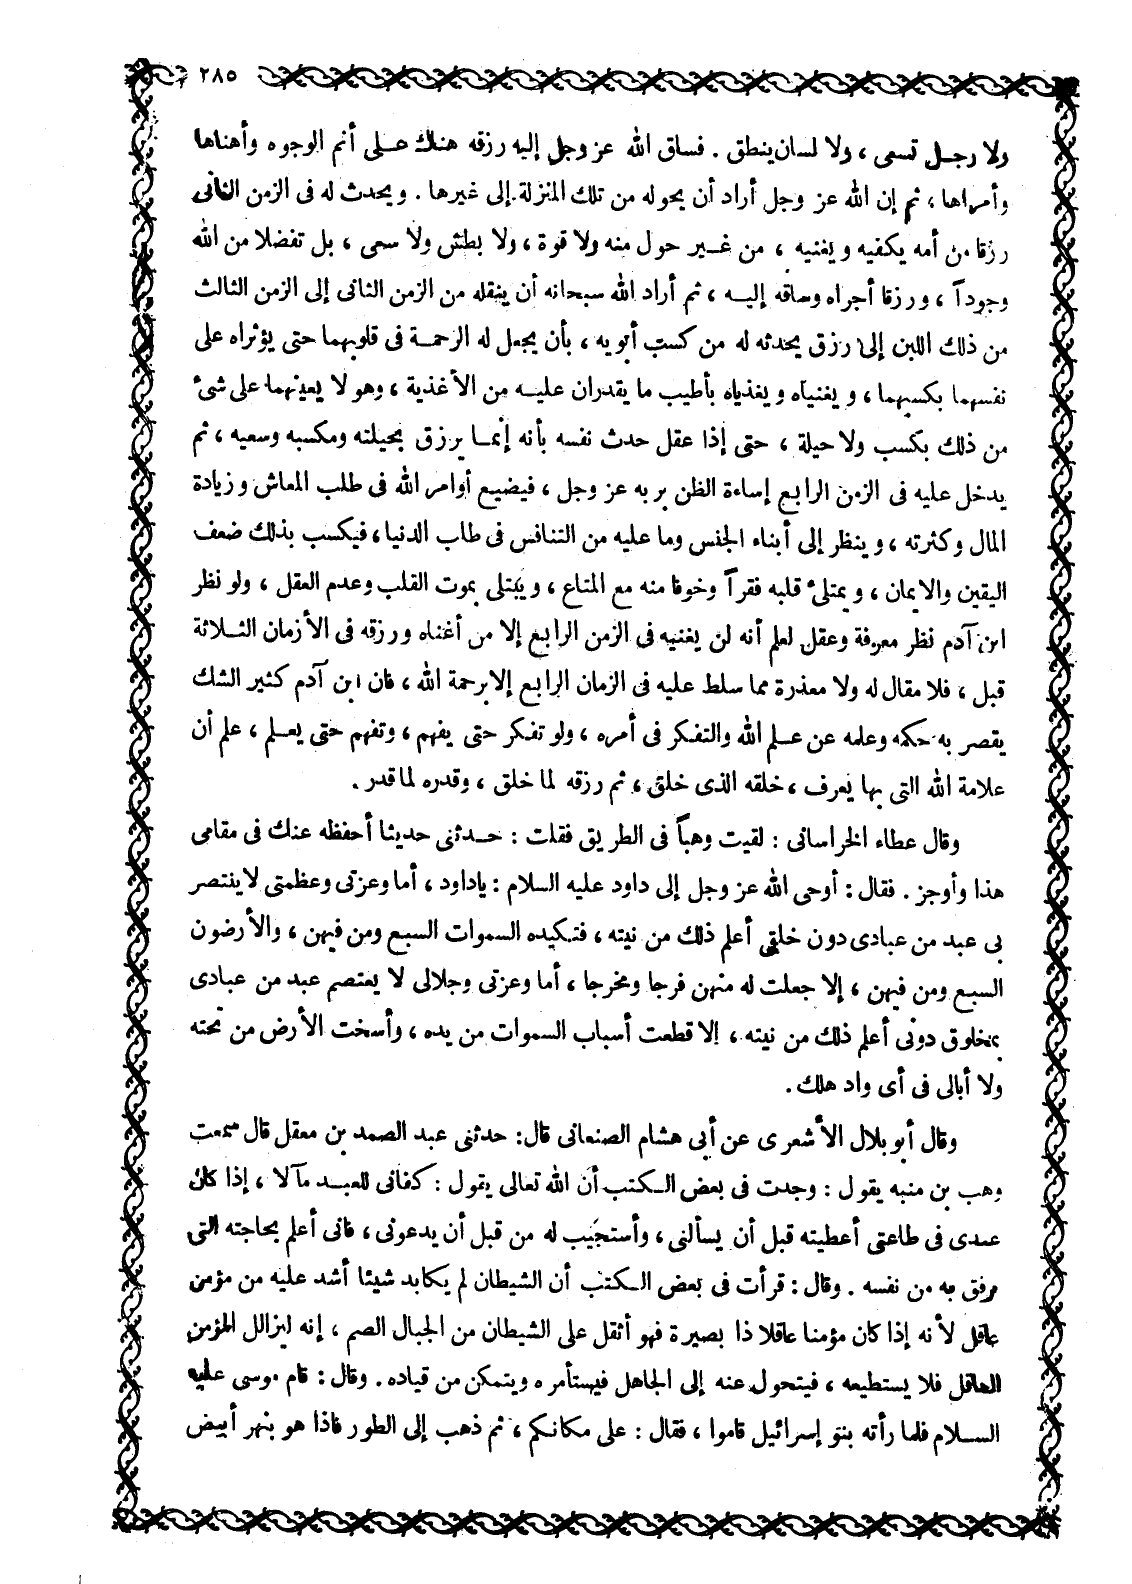 ٢٨٥
ولا رجل تسعى ، ولا لسان ينطق . فساق الله عز وجل إليه رزقه هناك على أتم الوجوه وأهناها
وأمراها ، ثم إن الله عز وجل أراد أن يحوله من تلك المنزلة إلى غيرها . ويحدث له فى الزمن الثانى
رزقا من أمه يكفيه ويغنيه ، من غير حول منه ولا قوة ، ولا بطش ولا سعى ، بل تفضلا من الله
وجوداً ، ورزقا أجراه وساقه إليه ، ثم أراد الله سبحانه أن ينقله من الزمن الثانى إلى الزمن الثالث
من ذلك اللبن إلى رزق يحدثه له من كسب أبويه ، بأن يجعل له الرحمة فى قلوبهما حتى يؤثراه على
نفسهما بكسبهما ، ويغنياه ويغذياه بأطيب ما يقدران عليه من الأغذية ، وهو لا يعينهما على شىء
من ذلك بكسب ولا حيلة ، حتى إذا عقل حدث نفسه بأنه إنما يرزق بحيلته ومكسبه وسعيه ، ثم
يدخل عليه فى الزمن الرابع إساءة الظن بربه عز وجل ، فيضيع أوامر الله فى طلب المعاش وزيادة
المال وكثرته ، وينظر إلى أبناء الجنس وما عليه من التنافس فى طاب الدنيا ، فيكسب بذلك ضعف
اليقين والايمان ، ويمتلىء قلبه فقراً وخوفا منه مع المتاع ، ويبتلى بموت القلب وعدم العقل ، ولو نظر
ابن آدم نظر معرفة وعقل لعلم أنه لن يغنيه فى الزمن الرابع إلا من أغناه ورزقه فى الأزمان الثلاثة
قبل ، فلا مقال له ولا معذرة مما سلط عليه فى الزمان الرابع إلا برحمة الله ، فان ابن آدم كثير الشك
يقصر به حكمه وعلمه عن علم الله والتفكر فى أمره ، ولو تفكر حتى يفهم ، وتفهم حتى يعلم ، علم أن
علامة الله التى بها يعرف ، خلقه الذى خلق ، ثم رزقه لما خلق ، وقدره لما قدر .
وقال عطاء الخراسانى : لقيت وهباً فى الطريق فقلت : حدثنى حديثا أحفظه عنك فى مقامى
هذا وأوجز . فقال : أوحى الله عز وجل إلى داود عليه السلام : ياداود ، أما وعزتى وعظمتى لا ينتصر
بى عبد من عبادى دون خلقى أعلم ذلك من نيته ، فتكيده السموات السبع ومن فيهن ، والأرضون
السبع ومن فيهن ، إلا جعلت له منهن فرجا ومخرجا ، أما وعزتى وجلالى لا يعتصم عبد من عبادى
بمخلوق دونى أعلم ذلك من نيته ، إلا قطعت أسباب السموات من يده ، وأسخت الأرض من تحته
ولا أبالى فى أى واد هلك .
وقال أبو بلال الأشعرى عن أبى هشام الصنعانى قال : حدثنى عبد الصمد بن معقل قال سمعت
وهب بن منبه يقول : وجدت فى بعض الكتب أن الله تعالى يقول : كفانى للعبد مآلا ، إذا كان
عبدى فى طاعتى أعطيته قبل أن يسألنى ، وأستجيب له من قبل أن يدعونى ، فانى أعلم بحاجته التى
ترفق به من نفسه . وقال : قرأت فى بعض الكتب أن الشيطان لم يكابد شيئا أشد عليه من مؤمن
عاقل لأنه إذا كان مؤمنا عاقلا ذا بصيرة فهو أثقل على الشيطان من الجبال الصم ، إنه ليزالل المؤمن
العاقل فلا يستطيعه ، فيتحول عنه إلى الجاهل فيستأمره ويتمكن من قياده . وقال : قام موسى عليه
السلام فلما رأته بنو إسرائيل قاموا ، فقال : على مكانكم ، ثم ذهب إلى الطور فاذا هو بنهر أبيض